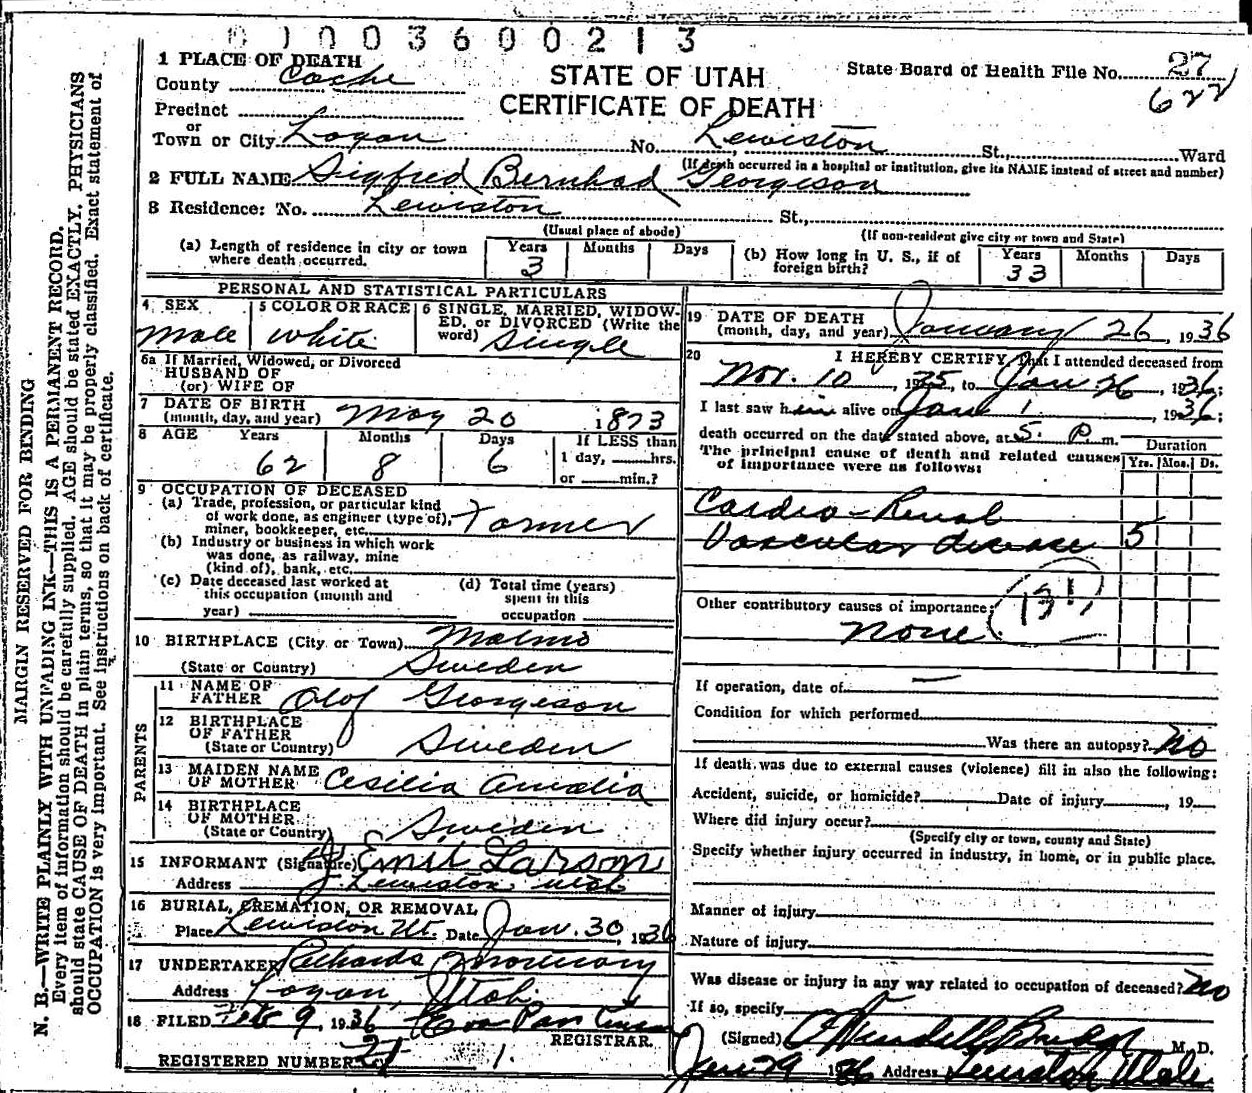 01003600213
1 PLACE OF DEATH
County Cache
STATE OF UTAH
CERTIFICATE OF DEATH
State Board of Health File No. 27
622
Precinct
or
Town or City Logan No. Lewiston St., Ward
(If death occurred in a hospital or institution, give its NAME instead of street and number)
2 FULL NAME Sigfred Bernhad Georgeson
3 Residence: No. Lewiston St.,
(Usual place of abode) (If non-resident give city or town and State)
(a) Length of residence in city or town where death occurred. Years 3 Months Days
(b) How long in U. S., if of foreign birth? Years 33 Months Days
PERSONAL AND STATISTICAL PARTICULARS
4 SEX Male
5 COLOR OR RACE White
6 SINGLE, MARRIED, WIDOWED, or DIVORCED (Write the word) Single
6a If Married, Widowed, or Divorced
HUSBAND OF
(or) WIFE OF
7 DATE OF BIRTH
(month, day, and year) May 20 1873
8 AGE Years 62 Months 8 Days 6 If LESS than 1 day, hrs. or min.?
9 OCCUPATION OF DECEASED
(a) Trade, profession, or particular kind
of work done, as engineer (type of),
miner, bookkeeper, etc. Farmer
(b) Industry or business in which work
was done, as railway, mine
(kind of), bank, etc.
(c) Date deceased last worked at
this occupation (month and
year)
(d) Total time (years)
spent in this
occupation
10 BIRTHPLACE (City or Town) Malmo
(State or Country) Sweden
PARENTS
11 NAME OF
FATHER Olof Georgeson
12 BIRTHPLACE
OF FATHER
(State or Country) Sweden
13 MAIDEN NAME
OF MOTHER Cesilia Amalia
14 BIRTHPLACE
OF MOTHER
(State or Country) Sweden
15 INFORMANT (Signature) J. Emil Larson
Address Lewiston, Utah
16 BURIAL, CREMATION, OR REMOVAL
Place Lewiston Ut. Date Jan. 30, 1936
17 UNDERTAKER Richards Mortuary
Address Logan, Utah
18 FILED Feb 9, 1936
REGISTRAR.
REGISTERED NUMBER
19 DATE OF DEATH
(month, day, and year) January 26, 1936
20 I HEREBY CERTIFY, That I attended deceased from
Nov. 10, 1935, to Jan 26, 1936;
I last saw him alive on Jan 1, 1936;
death occurred on the date stated above, at 5 P. m.
The principal cause of death and related causes
of importance were as follows:
Duration
Yrs. Mos. Ds.
Cardio-Renal
Vascular disease 5
Other contributory causes of importance: 131
none
If operation, date of —
Condition for which performed
Was there an autopsy? No
If death was due to external causes (violence) fill in also the following:
Accident, suicide, or homicide? Date of injury , 19
Where did injury occur?
(Specify city or town, county and State)
Specify whether injury occurred in industry, in home, or in public place.
Manner of injury
Nature of injury
Was disease or injury in any way related to occupation of deceased? No
If so, specify
(Signed) M. D.
Jan 29 1936 Address Lewiston Utah
MARGIN RESERVED FOR BINDING
N. B.—WRITE PLAINLY WITH UNFADING INK—THIS IS A PERMANENT RECORD.
Every item of information should be carefully supplied. AGE should be stated EXACTLY. PHYSICIANS
should state CAUSE OF DEATH in plain terms, so that it may be properly classified. Exact statement of
OCCUPATION is very important. See instructions on back of certificate.